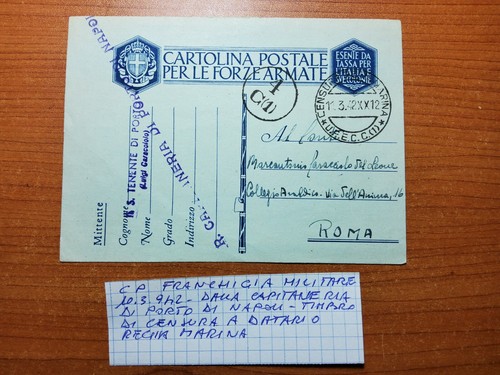 CARTOLINA POSTALE
PER LE FORZE ARMATE
ESENTE DA
TASSA PER
L'ITALIA E
R. CAPITANERIA DI PORTO DI NAPOLI
4
C(1)
11.3.42XX12
Mittente
Cognome
Nome
Grado
Indirizzo
IL S. TENENTE DI PORTO
(Luigi Caracciolo)
Al Conte
Marcantonio Caracciolo di Leone
Collegio Araldico - via dell'Anima, 16
ROMA
C P FRANCHIGIA MILITARE
10.3.942 - DALLA CAPITANERIA
DI PORTO DI NAPOLI - TIMBRO
DI CENSURA A DATARIO
REGIA MARINA